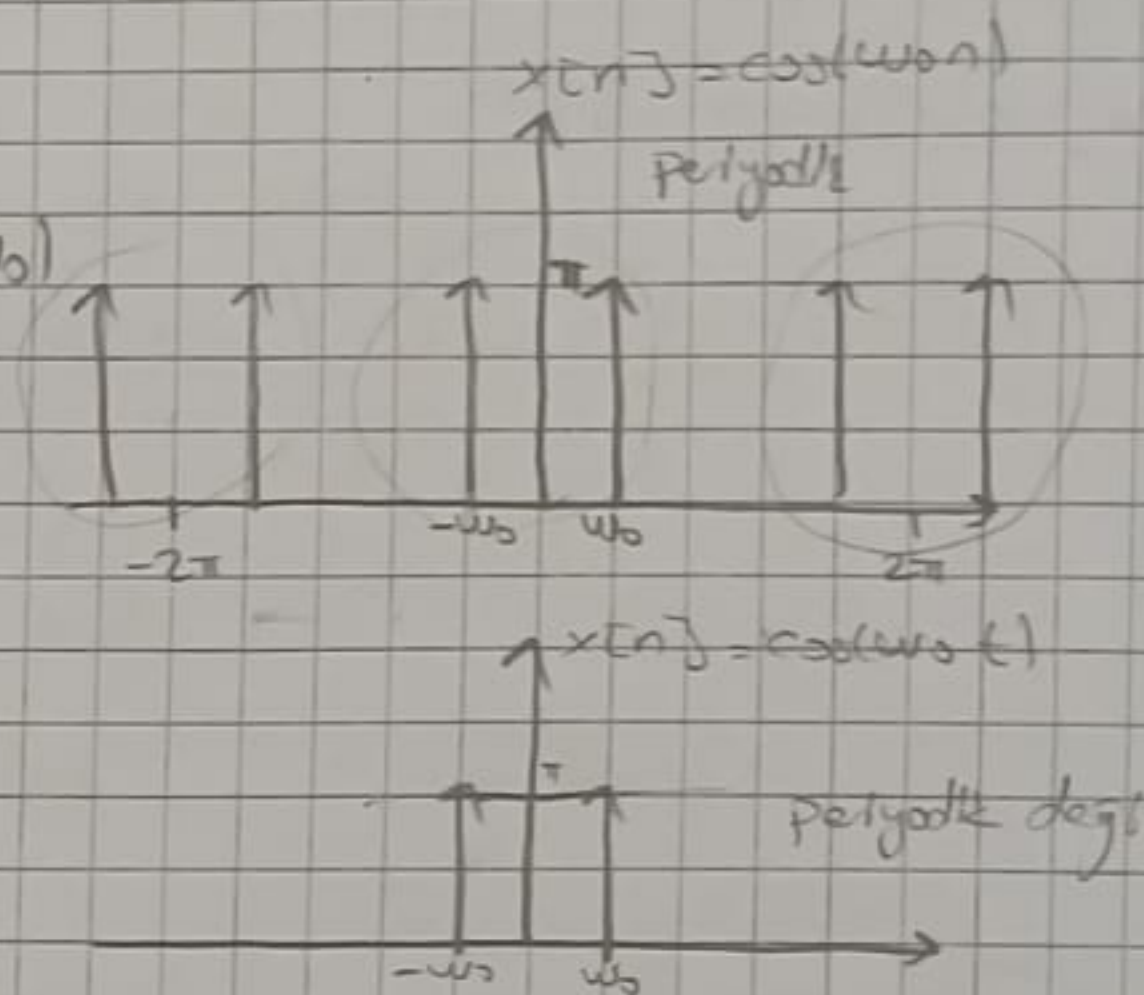 x[n] = cos(ω₀n)
periyodik
b)
π
-ω₀ ω₀
-2π 2π
x[n] = cos(ω₀t)
π
periyodik
-ω₀ ω₀